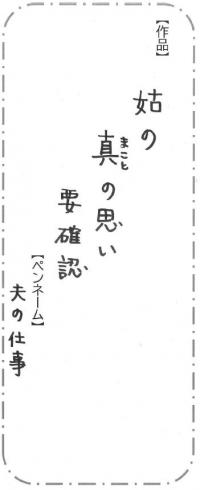 【作品】
姑の
真の思い
まこと
要確認
【ペンネーム】
夫の仕事